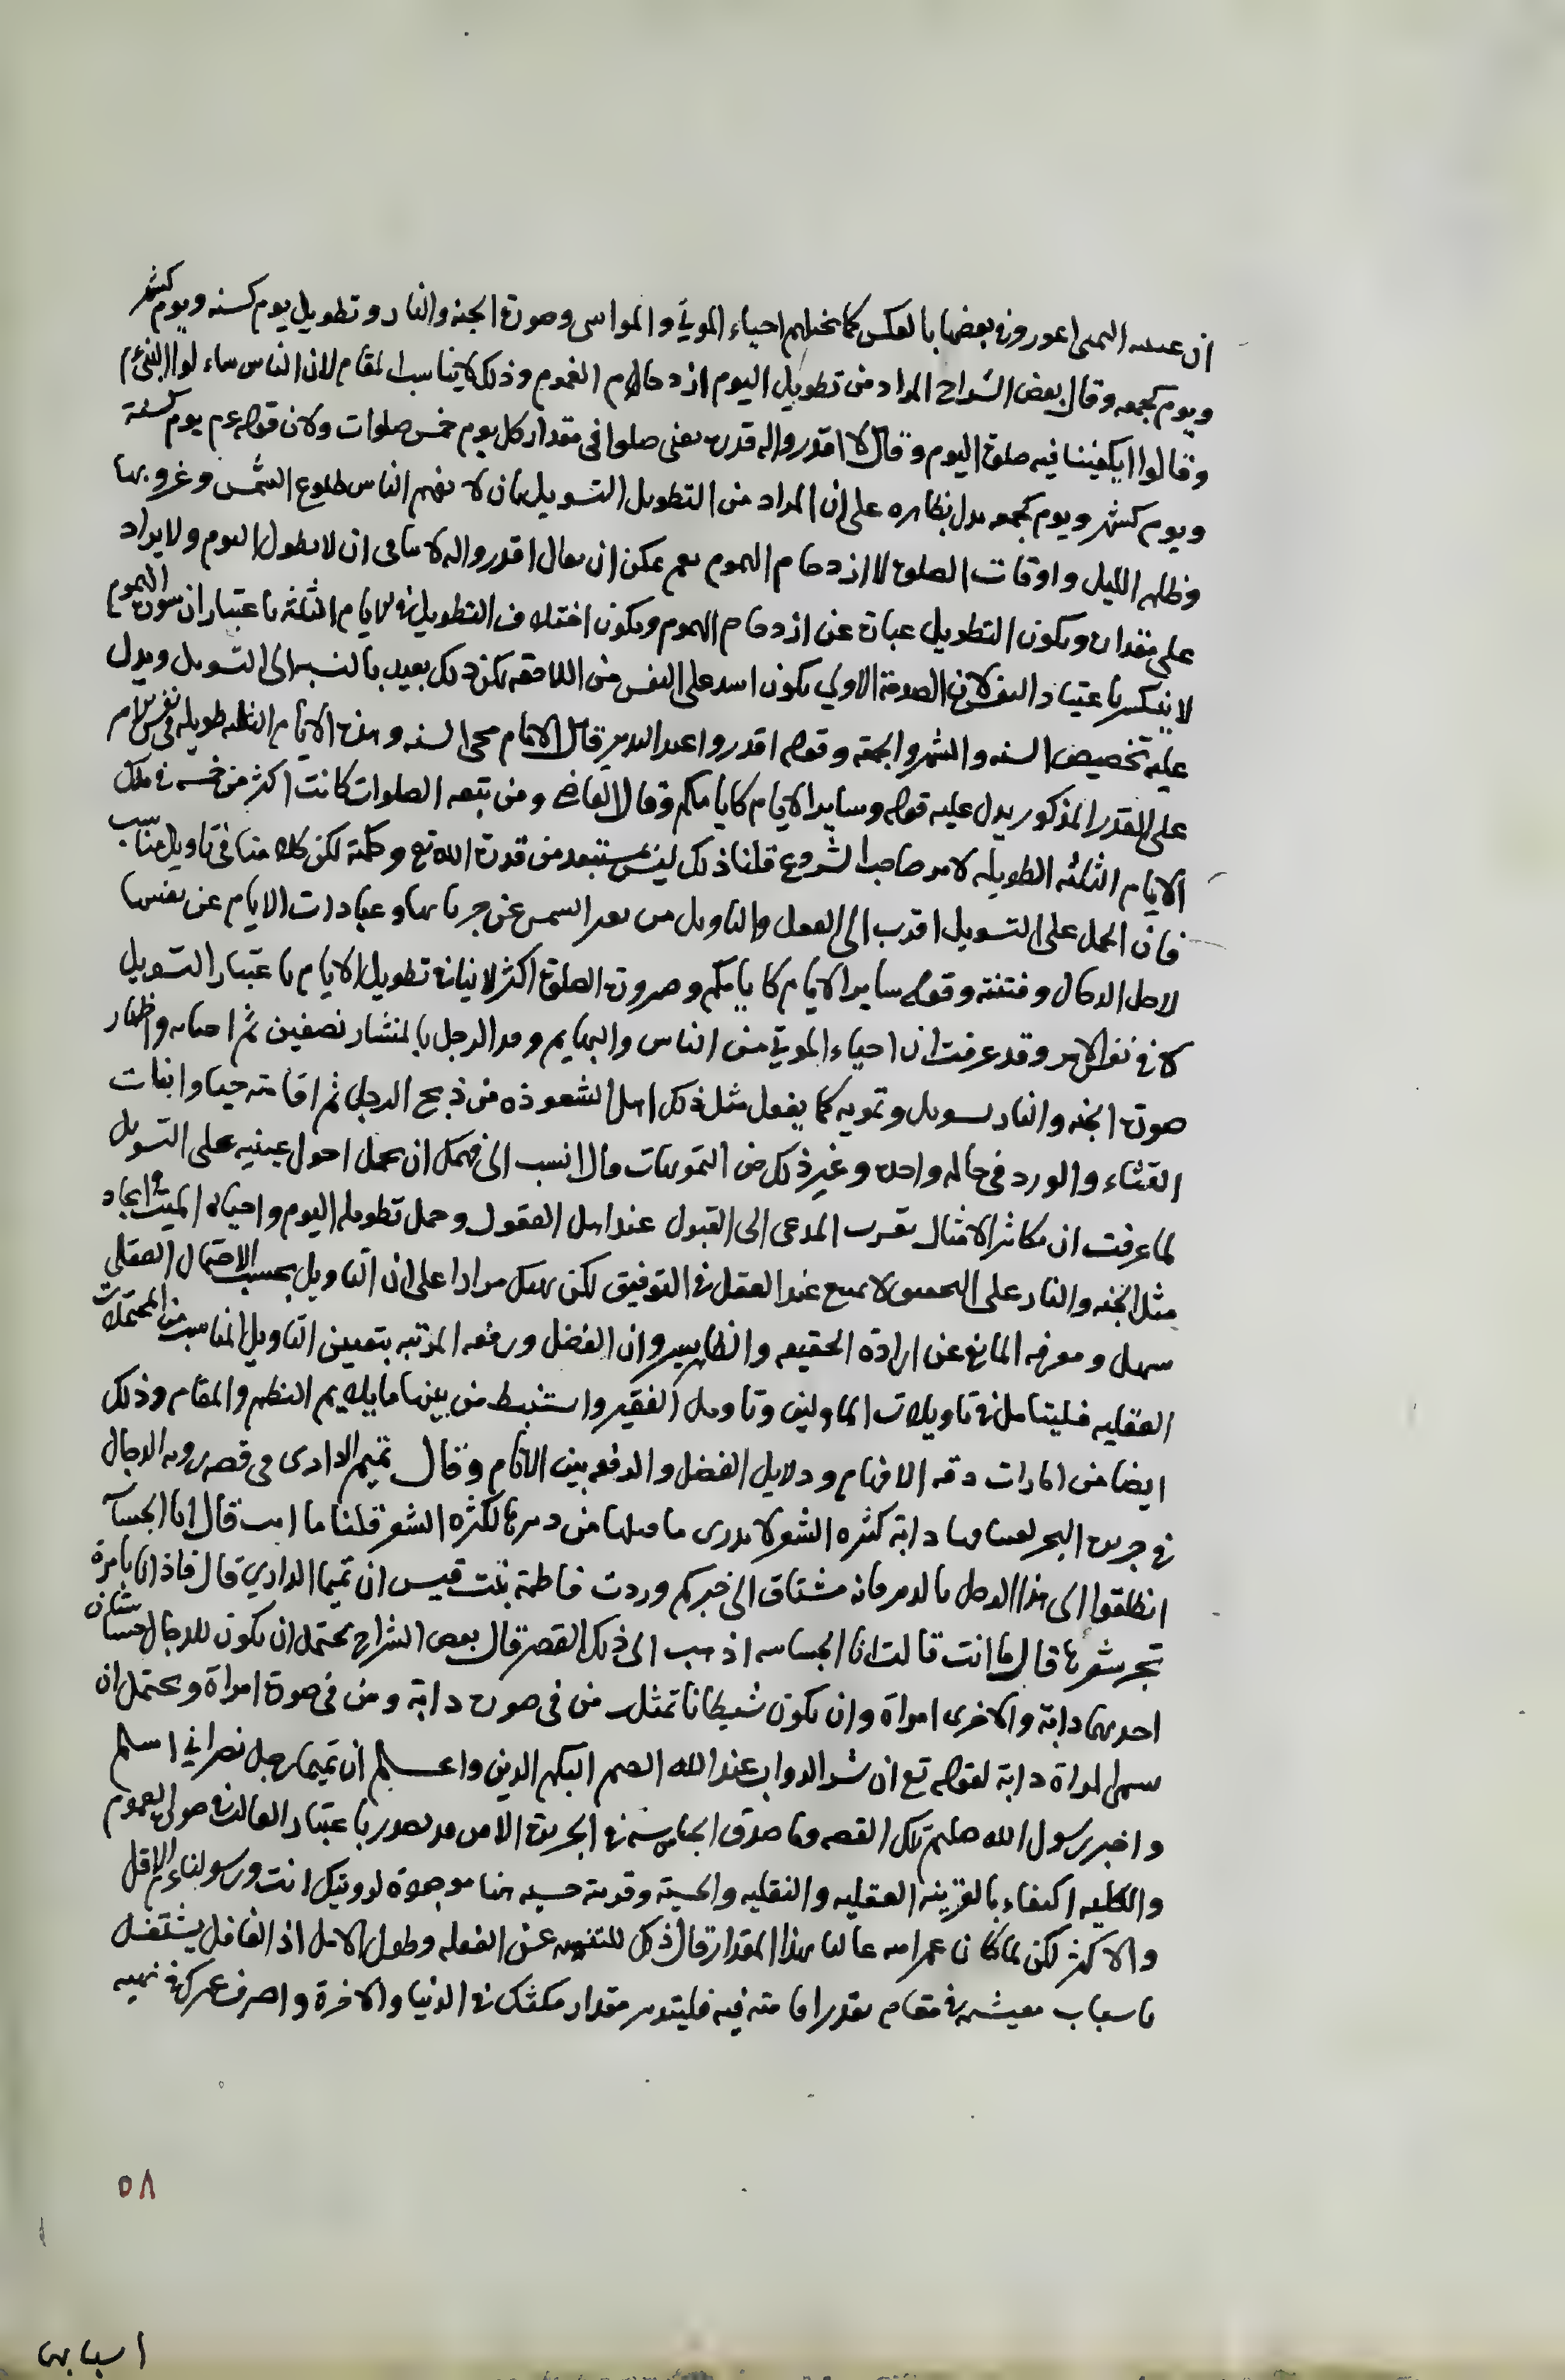 ان عينه اليمنى اعور وفي بعضها بالعكس كما تخيلهم احياء الموتي والمواشي وصورة الجنه والنار وتطويل يوم كسنه ويوم كشهر
ويوم كجمعه وقال بعض الشراح المراد من تطويل اليوم ازدحام الغموم وذلك لا يناسب المقام لان الناس ساءلوا النبي عم
وقالوا ايكفينا فيه صلوة اليوم وقال لا اقدروا له قدره يعنى صلوا في مقدار كل يوم خمس صلوات ولان قوله عم يوم كسنة
ويوم كشهر ويوم كجمعه يدل بظاهره على ان المراد من التطويل التسويل بان لا يفهم الناس طلوع الشمس وغروبها
وظلمه الليل واوقات الصلوة لا ازدحام الهموم نعم يمكن ان يقال اقدروا له لا ينافى ان لا يطول اليوم ولا يراد
على مقداره ويكون التطويل عبارة عن ازدحام الهموم ويكون اختلاف التطويل في الايام الثلثه باعتبار ان سورة الهموم
لا ينكسر باعتياد النفس لان الصدمة الاولي يكون اشد على النفس من اللاحقه لكن ذلك بعيد بالنسبه الى التسويل ويدل
عليه تخصيص السنه والشهر والجمعة وقوله اقدروا قال الامام محي السنه وهذه الايام الثلثه طويله في نفس الامر
على القدر المذكور يدل عليه قوله وساير الايام كايامكم وقال القاضي ومن تتمه الصلوات كانت اكثر من خمسه في تلك
الايام الثلثه الطويله لامر صاحب الشروع قلنا ذلك ليس بمستبعد من قدرة الله تع وحكمته لكن كلامنا في تاويل مناسب
فان الحمل على التسويل اقرب الى العقول والتاويل من بعد الشمس عن جريانها وعبادات الايام عن نفسها
لاجل الدجال وفتنته وقوله ساير الايام كايامكم وضرورة الصلوة اكثر لا ينافي تطويل الايام باعتبار التسويل
لا في نفس الامر وقد عرفت ان احياء الموتي من الناس والبهايم ومد الرجل بالمنشار نصفين ثم احياءه واظهار
صورة الجنه والنار تسويل وتمويه كما يفعل مثل ذلك اهل الشعوذه من ذبح الرجل ثم اقامته حيا وانبات
القثاء والورد في حاله واحده وغير ذلك من التمويهات فالانسب الى فهمك ان يحمل احول عينيه على التسويل
لما عرفت ان تكاثر الامثال يقرب المدعى الى القبول عند اهل العقول وحمل تطويله اليوم واحياه الميت وايجاد
مثل الجنه والنار على التحقيق لا يمنع عند العقل في التوفيق لكن ليس مرادا على ان التاويل بحسب الاحتمال العقلى
سهل ومعرفه المانع عن ارادة الحقيقه والظاهر وان الفضل ورفعه المرتبه بتعيين التاويل المناسب من المحتملات
العقليه فليتامل في تاويلات الماولين وتاويل الفقير واستنبط من بينها ما يلايم النظم والمقام وذلك
ايضا من امارات دقه الافهام ودلايل الفضل والرفعه بين الانام وقال تميم الدارى في قصه رويه الدجال
في جزيرة البحر لقينا فيها دابة كثره الشعر لا يدرى ما قبلها من دبرها لكثره الشعر قلنا ما انت قال انا الجساسة
انطلقوا الى هذا الرجل بالدير فانه مشتاق الى خبركم وردت فاطمة بنت قيس ان تميما الداري قال فاذا انا بامرة
تجر شعرها قال ما انت قالت انا الجساسه اذهب الى ذلك القصر قال بعض الشراح يحتمل ان يكون للدجال جساستان
احديهما دابة والاخرى امراة وان يكون شيطانا تمثل من في صورة دابة ومن في صورة امراة ويحتمل ان
سمى المراة دابة لقوله تع ان شر الدواب عند الله الصم البكم الذين واعلم ان تميما رجل نصراني اسلم
واخبر رسول الله صلعم تلك القصه وما صدق الجساسه في الجزيرة الا من باعتبار الغالب في صورة العموم
والكليه اكتفاء بالقرينه العقليه والنقليه والحسية وقرينة حسيه هنا موجودة لرؤيتك انت ورسولنا عم الاقل
والاكثر لكن لما كان عمر امته غالبا بهذا المقدار قال ذلك للتنبيه عن الغفله وطول الامل اذ الغافل يشتغل
باسباب معيشه في مقام بقدر اقامته فيه فليتدبر مقدار مكثك في الدنيا والاخرة واصرف عمرك في تهييه
٥٨
اسبابها